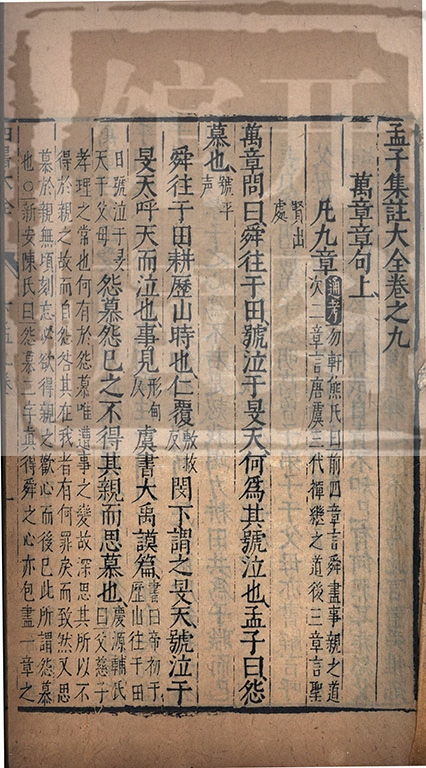 孟子集註大全卷之九
萬章章句上
凡九章 通考 勿軒熊氏曰前四章言舜盡事親之道
次二章言唐虞三代禪繼之道後三章言聖
賢出
處
萬章問曰舜往于田號泣于旻天何為其號泣也孟子曰怨
慕也 號平
声
舜往于田耕歷山時也仁覆 敷救反 閔下謂之旻天號泣于
旻天呼天而泣也事見 形甸反 虞書大禹謨篇 書曰帝初于
歷山往于田
日號泣于旻
天于父母 怨慕怨己之不得其親而思慕也 慶源輔氏
曰父慈子
孝理之常也何有於怨慕唯遭事之變故深思其所以不
得於親之故而自怨咎其在我者有何罪戾而致然又思
慕於親無頃刻忘必欲得親之歡心而後已此所謂怨慕
也○新安陳氏曰怨慕二字真得舜之心亦包盡一章之